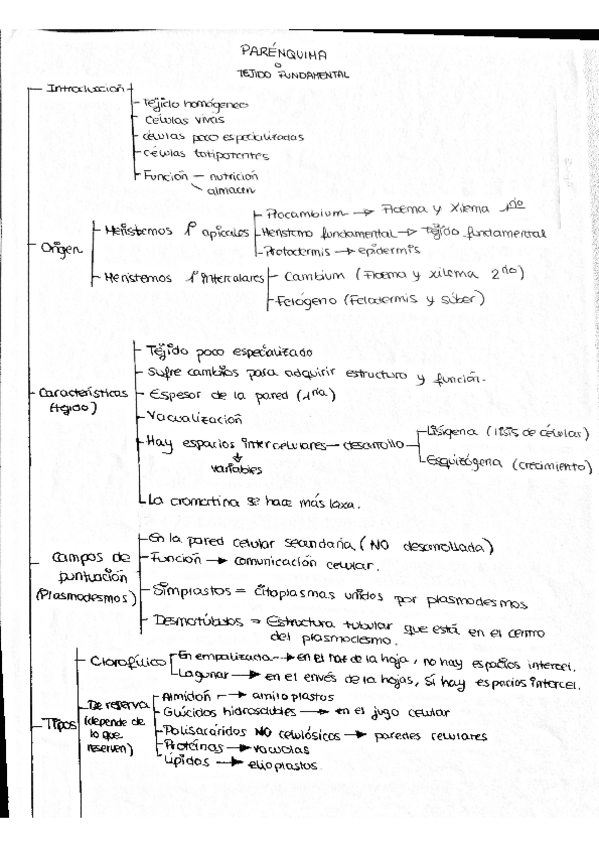 PARÉNQUIMA
o
TEJIDO FUNDAMENTAL
Introducción
Tejido homogéneo
células vivas
células poco especializadas
células totipotentes
Función — nutrición
almacen
Origen
Meristemos 1º apicales
Procambium → Floema y Xilema 1rio
Meristemo fundamental → Tejido fundamental
Protodermis → epidermis
Meristemos 1º intercalares
Cambium (Floema y xilema 2rio)
Felógeno (Felodermis y súber)
Características
(tejido)
Tejido poco especializado
Sufre cambios para adquirir estructura y función.
Espesor de la pared (1ria)
Vacualización
Hay espacios intercelulares — desarrollo
variables
Lisígena (lisis de célular)
Esquizógena (crecimiento)
La cromatina se hace más laxa.
Campos de
puntuación
(Plasmodesmos)
En la pared celular secundaria (NO desarrollada)
Función → comunicación celular.
Simplastos = citoplasmas unidos por plasmodesmos
Desmotúbulos = Estructura tubular que está en el centro
del plasmodesmo.
Tipos
Clorofílico
En empalizada → en el haz de la hoja, no hay espacios intercel.
Lagunar → en el envés de la hojas, sí hay espacios intercel.
De reserva
(depende de
lo que
reserven)
Almidón → amiloplastos
Glúcidos hidrosolubles → en el jugo celular
Polisacáridos NO celulósicos → paredes celulares
Proteínas → vacuolas
Lípidos → elioplastos